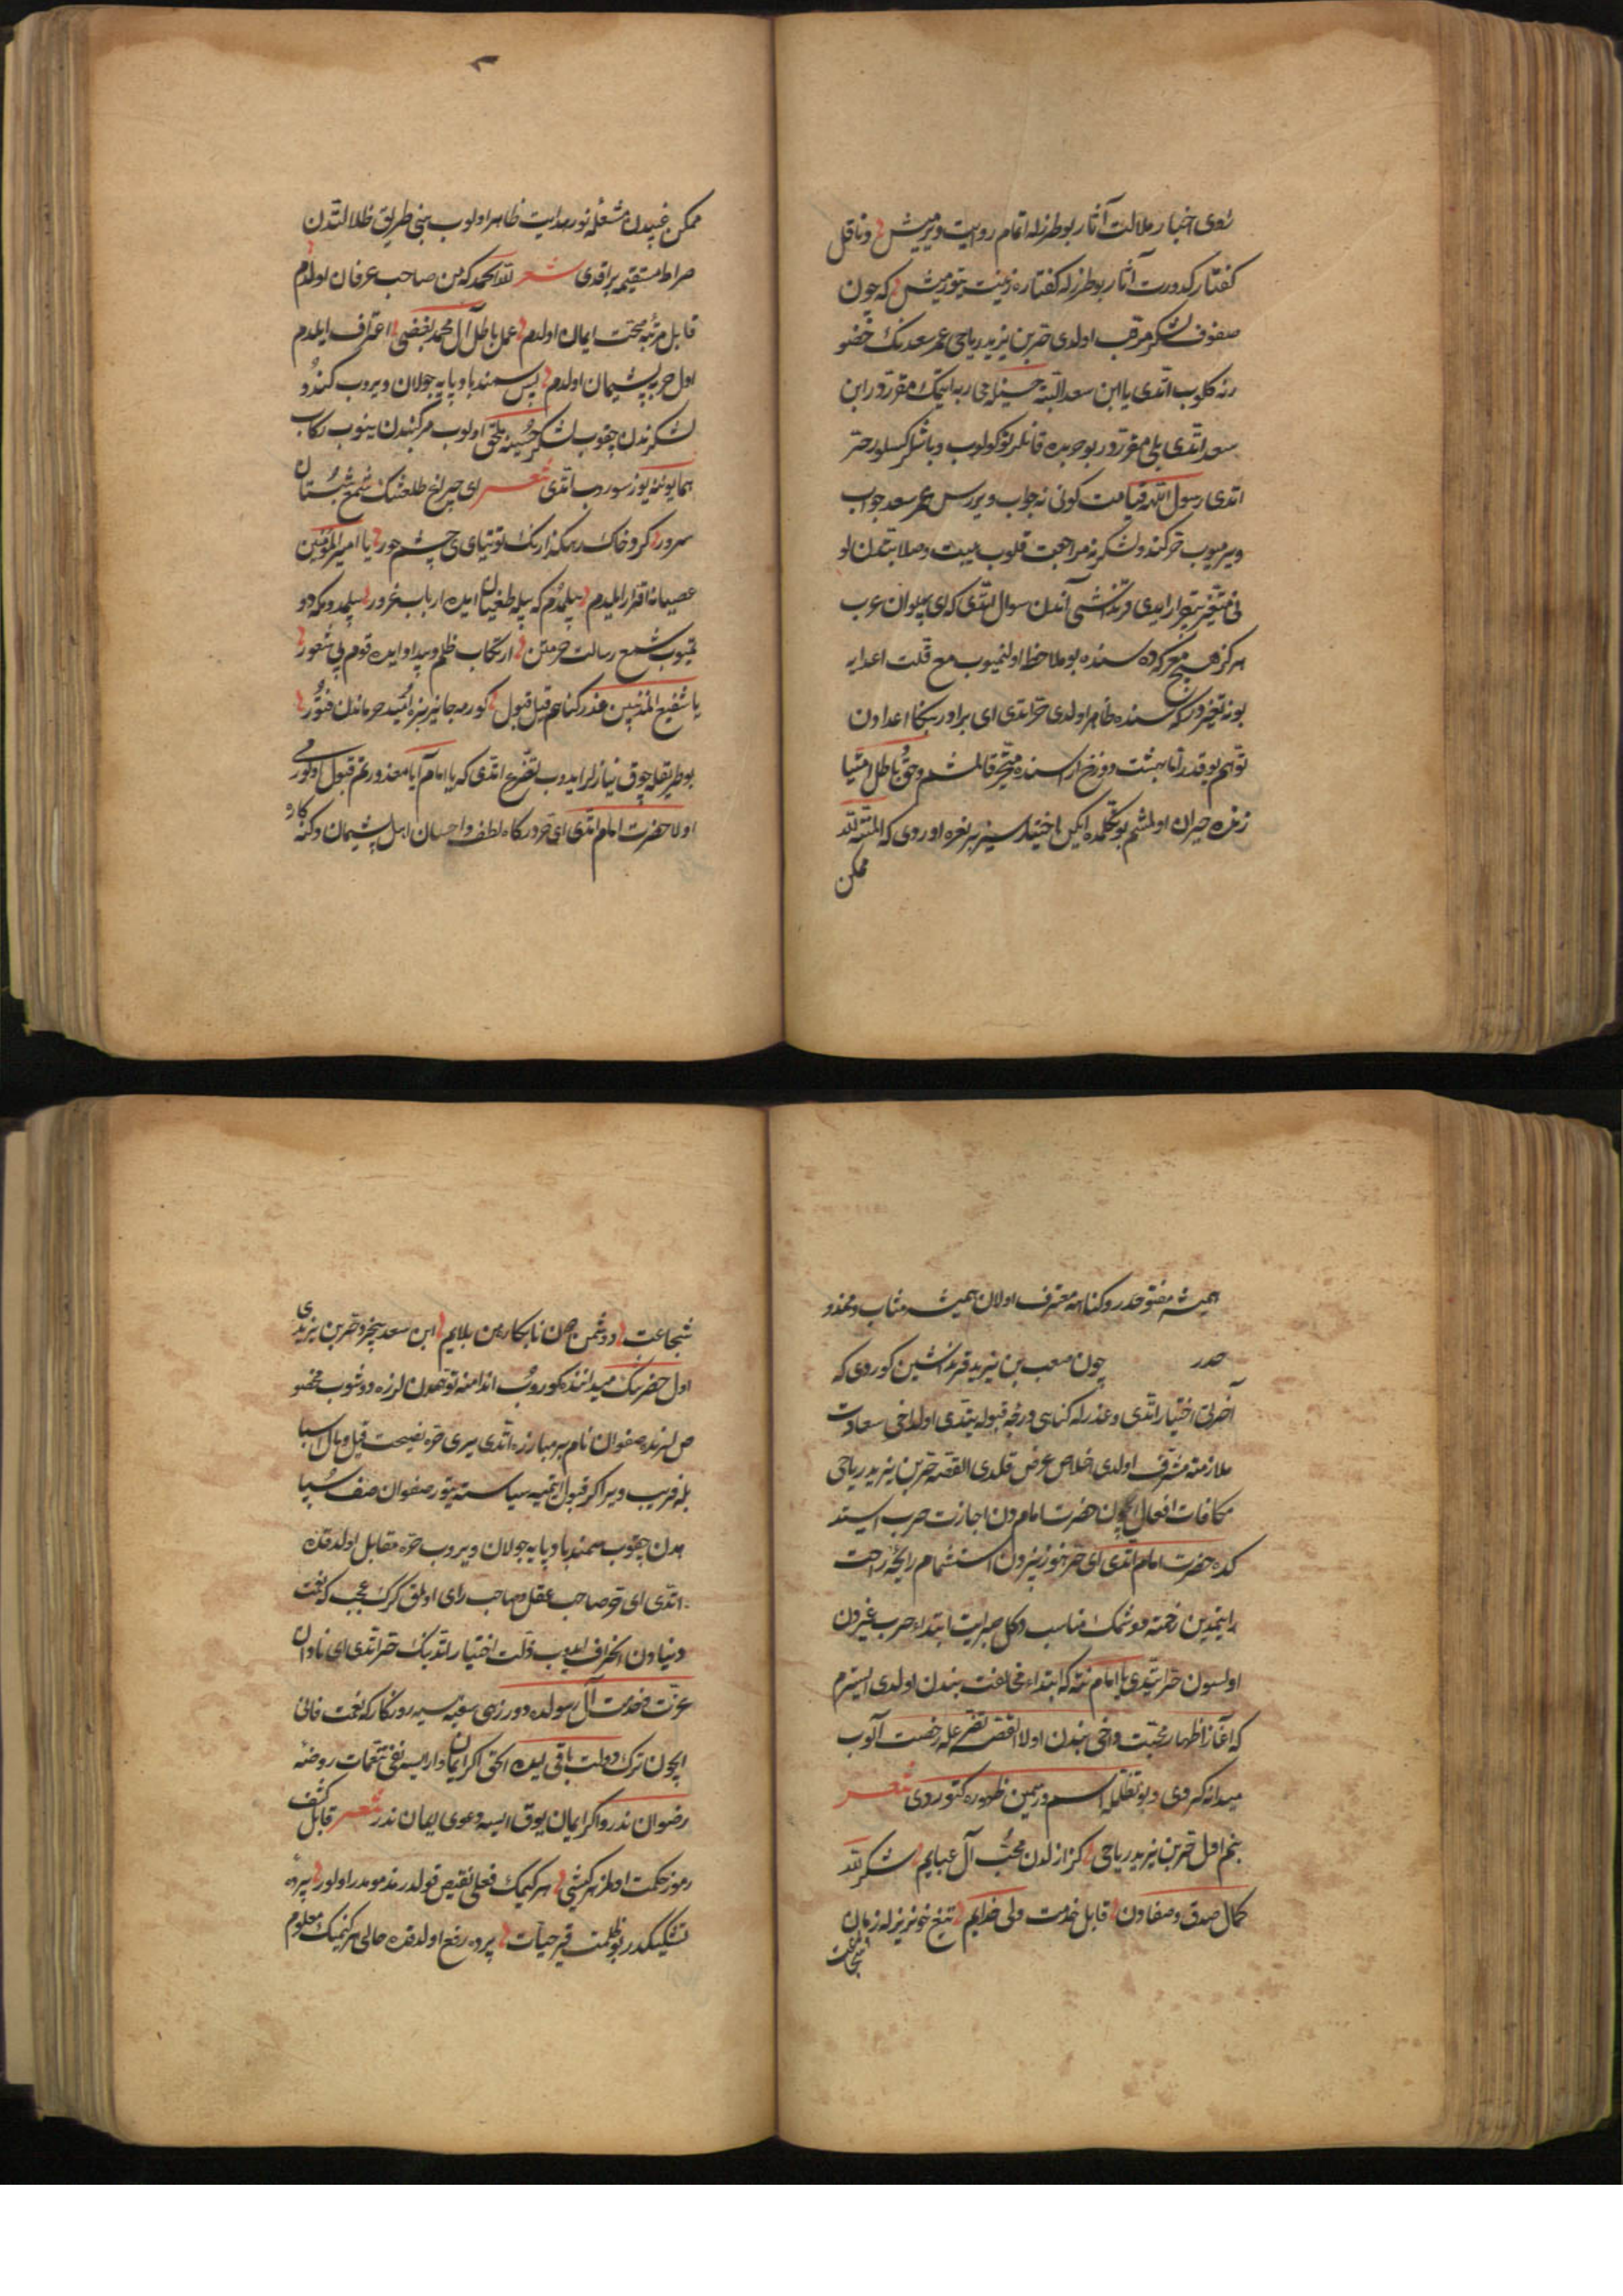 راوی اخبار ملالت آثار بو طرزله اتمام روایت ویرمیش و ناقل
کفتار کدورت آثار بو طرزله کفتاره زینت یتورمیش که چون
صفوف لشکر مرتب اولدی حر بن یزید ریاحی عمر سعدنک حضو
رنه کلوب اتدی یا ابن سعد البته حسینله محاربه ایتمک مقرردور ابن
سعد اتدی بلی مقرردور بو حربده قانلر توکولوب و باشلر کسلور حر
اتدی رسول اللهه قیامت کونی نه جواب ویررسن عمر سعد جواب
ویرمیوب حر کندو لشکرنه مراجعت قلوب هیبت و صلابتدن لو
نی متغیر بیقرار ایدی قرنداشی آندن سوال اتدی که ای پهلوان عرب
هرکز هیچ معرکه ده سنده بو ملاحظه اولنمیوب مع قلت اعدایه
بو نه تغیردور که سنده ظاهر اولدی حر اتدی ای برادر بنکا اعدادن
توهم یوقدر اما بهشت و دوزخ اراسنده متحیر قالمشم و حق و باطل امتیا
زنده حیران اولمشم بو تکلمده ایکن اختیارسیز بر نعره اوردی که المنة لله
ممکن
ممکن غیبدن مشعله نور هدایت ظاهر اولوب بنی طریق ظلالتدن
صراط مستقیمه براقدی شعر لله الحمد که من صاحب عرفان اولدم
قابل مرتبه صحت ایمان اولدم عمل باطل آل محمد بغضی اعتراف ایلدم
اول حربه پشیمان اولدم پس سمند بادپایه جولان ویروب کندو
لشکرندن چقوب لشکر حسینه ملحق اولوب مرکبندن ینوب رکاب
همایوننه یوز سوروب اتدی شعر ای چراغ طلعتنک شمع شبستان
سرور کرد خاک رهکذارنک توتیای چشم حور یا امیر المؤمنین
عصیانه اقرار ایلیدم بیلمدم که بیله طغیان ایده ارباب غرور بیلمدوم که دو
تمیوب شمع رسالت حرمتن ارتکاب ظلم و بیداد ایده قوم بی شعور
یا شفیع المذنبین عذر کناهم قیل قبول کورمه جانیز بزه امید حرماندن فتور
بو طریقله چوق نیازلر ایدوب تضرع اتدی که یا امام آیا معذورتم قبول اولورمی
اولا حضرت امام اتدی ای حر درکاه لطف و احسان اهل پشیمان و کنه کاره
همیشه مفتوحدر و کناهه معترف اولان همیشه مثاب و مخدو
حدر چون مصعب بن یزید قرنداشین کوردی که
آخرتی اختیار اتدی و عذرله کناهی درجه قبوله یتدی اول داخی سعادت
ملازمته مشرف اولدی اخلاص عرض قلدی القصه حر بن یزید ریاحی
مکافات افعال ایچون حضرت امام دن اجازت حرب ایستد
کده حضرت امام اتدی ای حر هنوز بزدن استشمام رایحه راحت
ایتمدین زحمته دوشمک مناسب دکل صبر ایت ابتداء حرب غیردن
اولسون حر ایتدی یا امام نته که ابتداء مخالفت بندن اولدی ایسترم
که آغاز اظهار محبت داخی بندن اولا القصه تضرعله رخصت آلوب
میدانه کیردی و بو تظلمله اسم و رسمین ظهوره کتوردی شعر
بنم اول حر بن یزید ریاحی کز ازلدن محب آل عبایم شکر لله
کمال صدق و صفادن قابل خدمت ولی خدایم تیغ خونریزله زبان
شجاعت
شجاعت دوشمن جان نابکار من بلایم ابن سعد بیخرد حر بن یزیدی
اول حضرتنک میداننده کوروب اندامنه توهمدن لرزه دوشوب مخصو
صلرنده صفوان نام بر مبارزه اتدی سری حره نصیحت قیل و مال اسبا
بله فریب ویر اکر قبول ایتمیه سیاسته یتور صفوان صف سپا
هدن چقوب سمند بادپایه جولان ویروب حره مقابل اولدقده
اتدی ای حر صاحب عقل و صاحب رای اولمق کرک عجب که نعمت
دنیادن انحراف ایدیوب ذلت اختیار اتدینک حر اتدی ای نادان
عزت خدمت آل رسولده دور زهی سفیه سیه روزکار که نعمت فانی
ایچون ترک دولت باقی ایده الحق اکر ایمان وار ایسه نفی تنعمات روضه
رضوان ندر و اکر ایمان یوق ایسه دعوی ایمان ندر شعر قابل کشف
رموز حکمت اولمز هر کشی هر کیمک فعلی نقیض قولدر مذمومدر اولور پرده
تشکیکدر بو ظلمت قیر حیات پرده رفع اولدقده حالی هر کیمنک معلوم